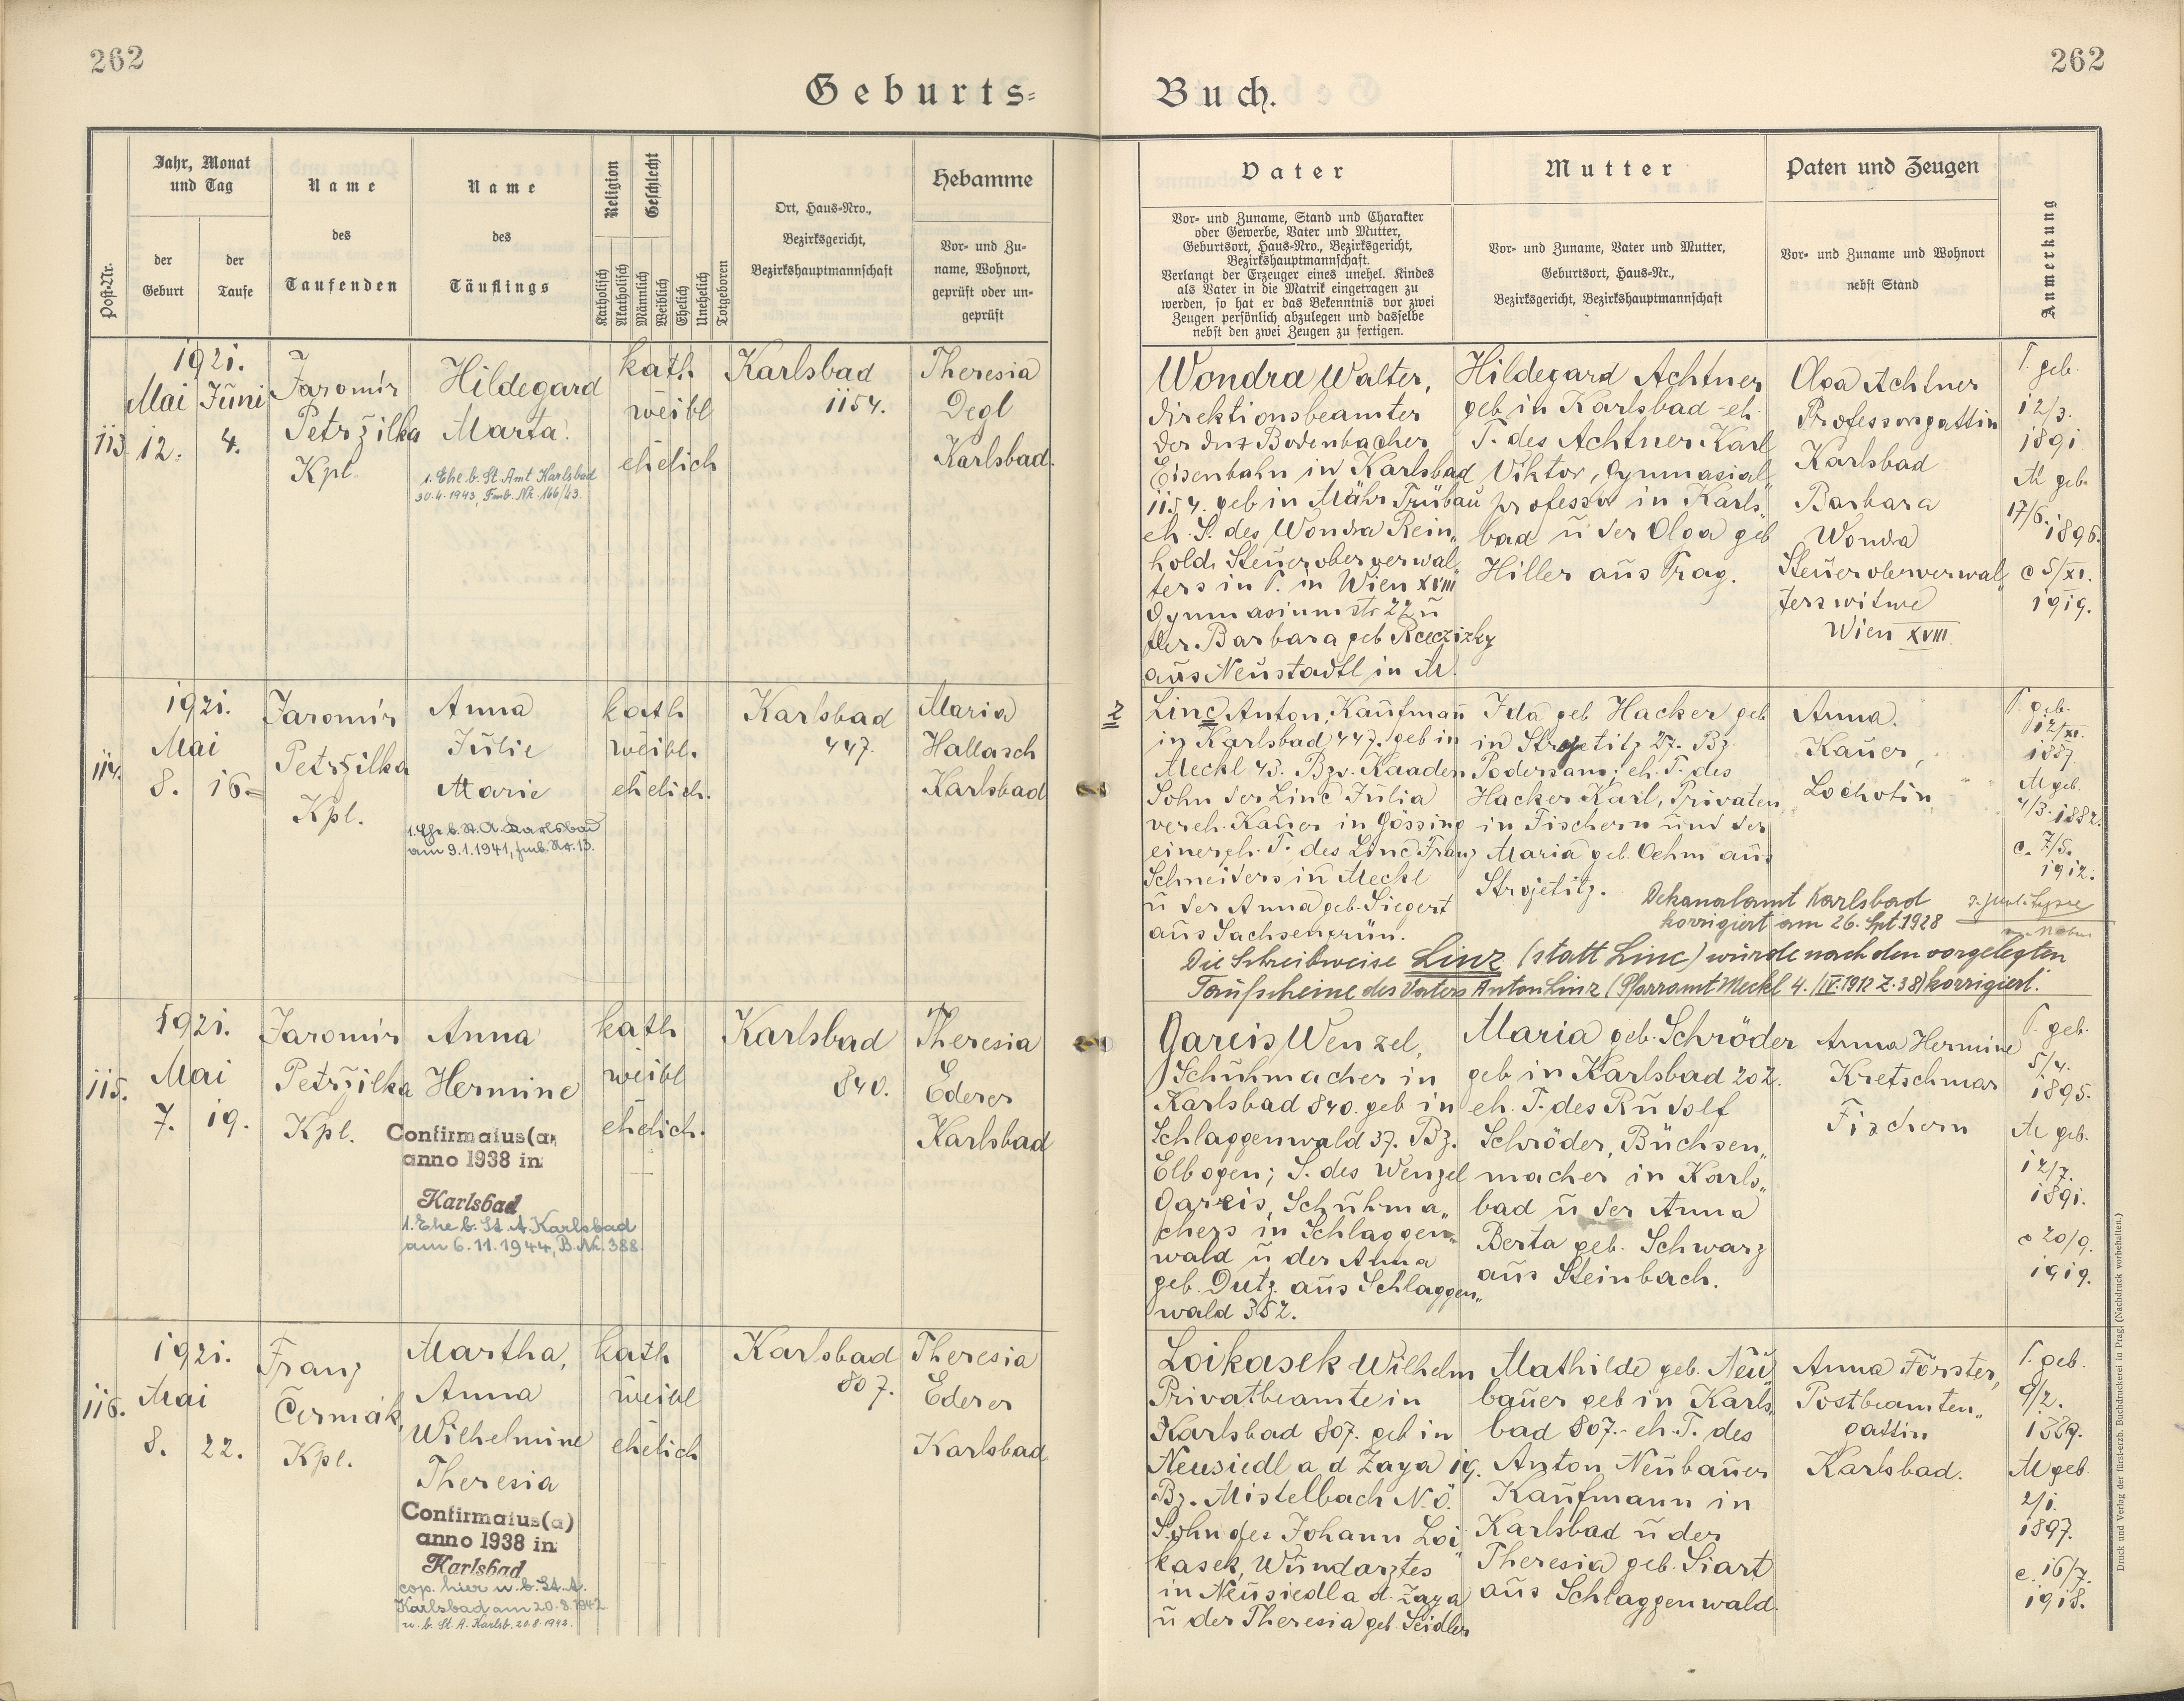 262
262
Geburts=
Buch.
Post-Nr.
Jahr, Monat
und Tag
der
Geburt
der
Taufe
Name
des
Taufenden
Name
des
Täuflings
Religion
Katholisch
Akatholisch
Geschlecht
Männlich
Weiblich
Ehelich
Unehelich
Totgeboren
Ort, Haus-Nro.,
Bezirksgericht,
Bezirkshauptmannschaft
Hebamme
Vor- und Zu-
name, Wohnort,
geprüft oder un-
geprüft
Vater
Vor- und Zuname, Stand und Charakter
oder Gewerbe, Vater und Mutter,
Geburtsort, Haus-Nro., Bezirksgericht,
Bezirkshauptmannschaft.
Verlangt der Erzeuger eines unehel. Kindes
als Vater in die Matrik eingetragen zu
werden, so hat er das Bekenntnis vor zwei
Zeugen persönlich abzulegen und dasselbe
nebst den zwei Zeugen zu fertigen.
Mutter
Vor- und Zuname, Vater und Mutter,
Geburtsort, Haus-Nr.,
Bezirksgericht, Bezirkshauptmannschaft
Paten und Zeugen
Vor- und Zuname und Wohnort
nebst Stand
Anmerkung
113.
1921.
Mai Juni
12. 4.
Jaromír
Petržilka
Kpl.
Hildegard
Marta.
1. Ehe b. St. Amt Karlsbad
30.4.1943, Fmb. Nr. 166/43.
kath.
weibl
ehelich
Karlsbad
1154.
Theresia
Degl
Karlsbad.
Wondra Walter,
direktionsbeamter
der Bodenbacher
Eisenbahn in Karlsbad
1154. geb in Mähr Trübau
eh. S. des Wondra Rein„
hold, Steueroberverwal„
ters in P. in Wien XVIII
Gymnasiumstr 22 u
der Barbara geb
aus Neustadtl in M.
Hildegard Achtner
geb in Karlsbad - eh.
T. des Achtner Karl
Viktor, Gymnasial„
professor in Karls„
bad u der Olga geb
Hiller aus Prag.
Olga Achtner
Professorsgattin
Karlsbad
Barbara
Wondra
Steueroberverwal„
terswitwe
Wien XVIII.
V. geb.
12/3.
1891
M geb.
17/6.
1896.
c 5/XI.
1919.
114.
1921.
Mai
8. 16.
Jaromír
Petržilka
Kpl.
Anna
Julie
Marie
1. Ehe b. St. A. Karlsbad
am 9.1.1941, fmb. Nr. 13.
kath
weibl.
ehelich.
Karlsbad
447.
Maria
Hallasch
Karlsbad
z
Linc Anton, Kaufmann
in Karlsbad 447. geb in
Meckl 43. Bzv. Kaaden
Sohn der Linc Julia
vereh. Kauer in Gössing
einer eh. T. des Linc Franz
Schneiders in Meckl
u der Anna geb. Siegert
aus Sachsengrün.
Ida geb Hacker geb
in Strojetitz 27. Bz.
Podersam; eh. T. des
Hacker Karl, Privaten
in Fischern und der
Maria geb. Oehm aus
Strojetitz.
Anna.
Kauer,
Lochotin
V. geb.
12/XI.
1887.
M geb.
4/3. 1882.
c. 7/5.
1912.
Dekanalamt Karlsbad
korrigiert am 26. Spt. 1928
Die Schreibweise Linz (statt Linc) wurde nach den vorgelegten
Taufscheine des Vaters Anton Linz (Pfarramt Meckl 4./IV. 1912 Z. 38) korrigiert.
115.
1921.
Mai
7. 19.
Jaromír
Petržilka
Kpl.
Anna
Hermine
Confirmatus(a)
anno 1938 in:
Karlsbad
1. Ehe b. St. A. Karlsbad
am 6.11.1944, B. Nr. 388.
kath
weibl
ehelich.
Karlsbad
840.
Theresia
Ederer
Karlsbad
Gareis Wenzel,
Schuhmacher in
Karlsbad 840. geb in
Schlaggenwald 37. Bz.
Elbogen; S. des Wenzel
Gareis, Schuhma„
chers in Schlaggen„
wald u der Anna
geb. Dutz aus Schlaggen„
wald 352.
Maria geb. Schröder
geb in Karlsbad 202.
eh. T. des Rudolf
Schröder, Büchsen„
macher in Karls„
bad u der Anna
Berta geb. Schwarz
aus Steinbach.
Anna Hermine
Kretschmar
Fischern
V. geb.
5/4.
1895.
M geb.
12/7.
1891.
c 20/9.
1919.
116.
1921.
Mai
8. 22.
Franz
Čermák,
Kpl.
Martha,
Anna
Wilhelmine
Theresia
Confirmatus(a)
anno 1938 in:
Karlsbad
cop. hier u. b. St. A.
Karlsbad am 20.8.1942.
u. b. St. A. Karlsb. 20.8.1942.
kath
weibl
ehelich
Karlsbad
807.
Theresia
Ederer
Karlsbad
Loikasek Wilhelm
Privatbeamte in
Karlsbad 807. geb in
Neusiedl a d Zaya 19.
Bz. Mistelbach N.Ö.
Sohn des Johann Loi„
kasek, Wundarztes
in Neusiedl a d. Zaya
u der Theresia geb. Seidler
Mathilde geb. Neu„
bauer geb in Karls„
bad 807.- eh. T. des
Anton Neubauer
Kaufmann in
Karlsbad u der
Theresia geb. Siart
aus Schlaggenwald.
Anna Förster,
Postbeamten„
gattin
Karlsbad.
V. geb.
9/2.
1889.
M geb.
2/1.
1897.
c. 16/7.
1918.
Druck und Verlag der fürst-erzb. Buchdruckerei in Prag. (Nachdruck vorbehalten.)